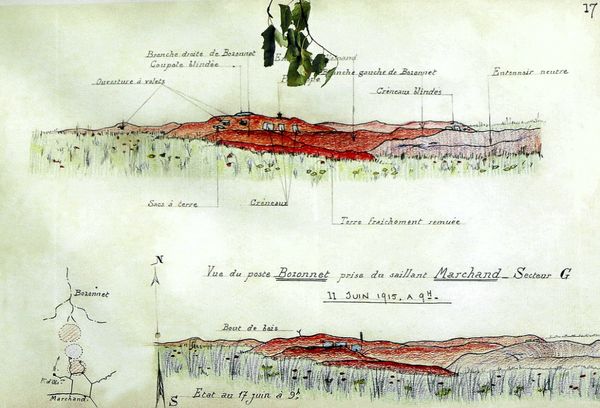 17
Branche droite de Bozonnet
Coupole blindée
Ouverture à volets
Branche gauche de Bozonnet
Entonnoir neutre
Créneaux blindés
Sacs à terre
Créneaux
Terre fraichement remuée
N
Vue du poste Bozonnet prise du saillant Marchand_ Secteur G
11 JUIN 1915. A 9H.
Bozonnet
Bout de bois
Marchand
S
Etat au 17 juin à 9h